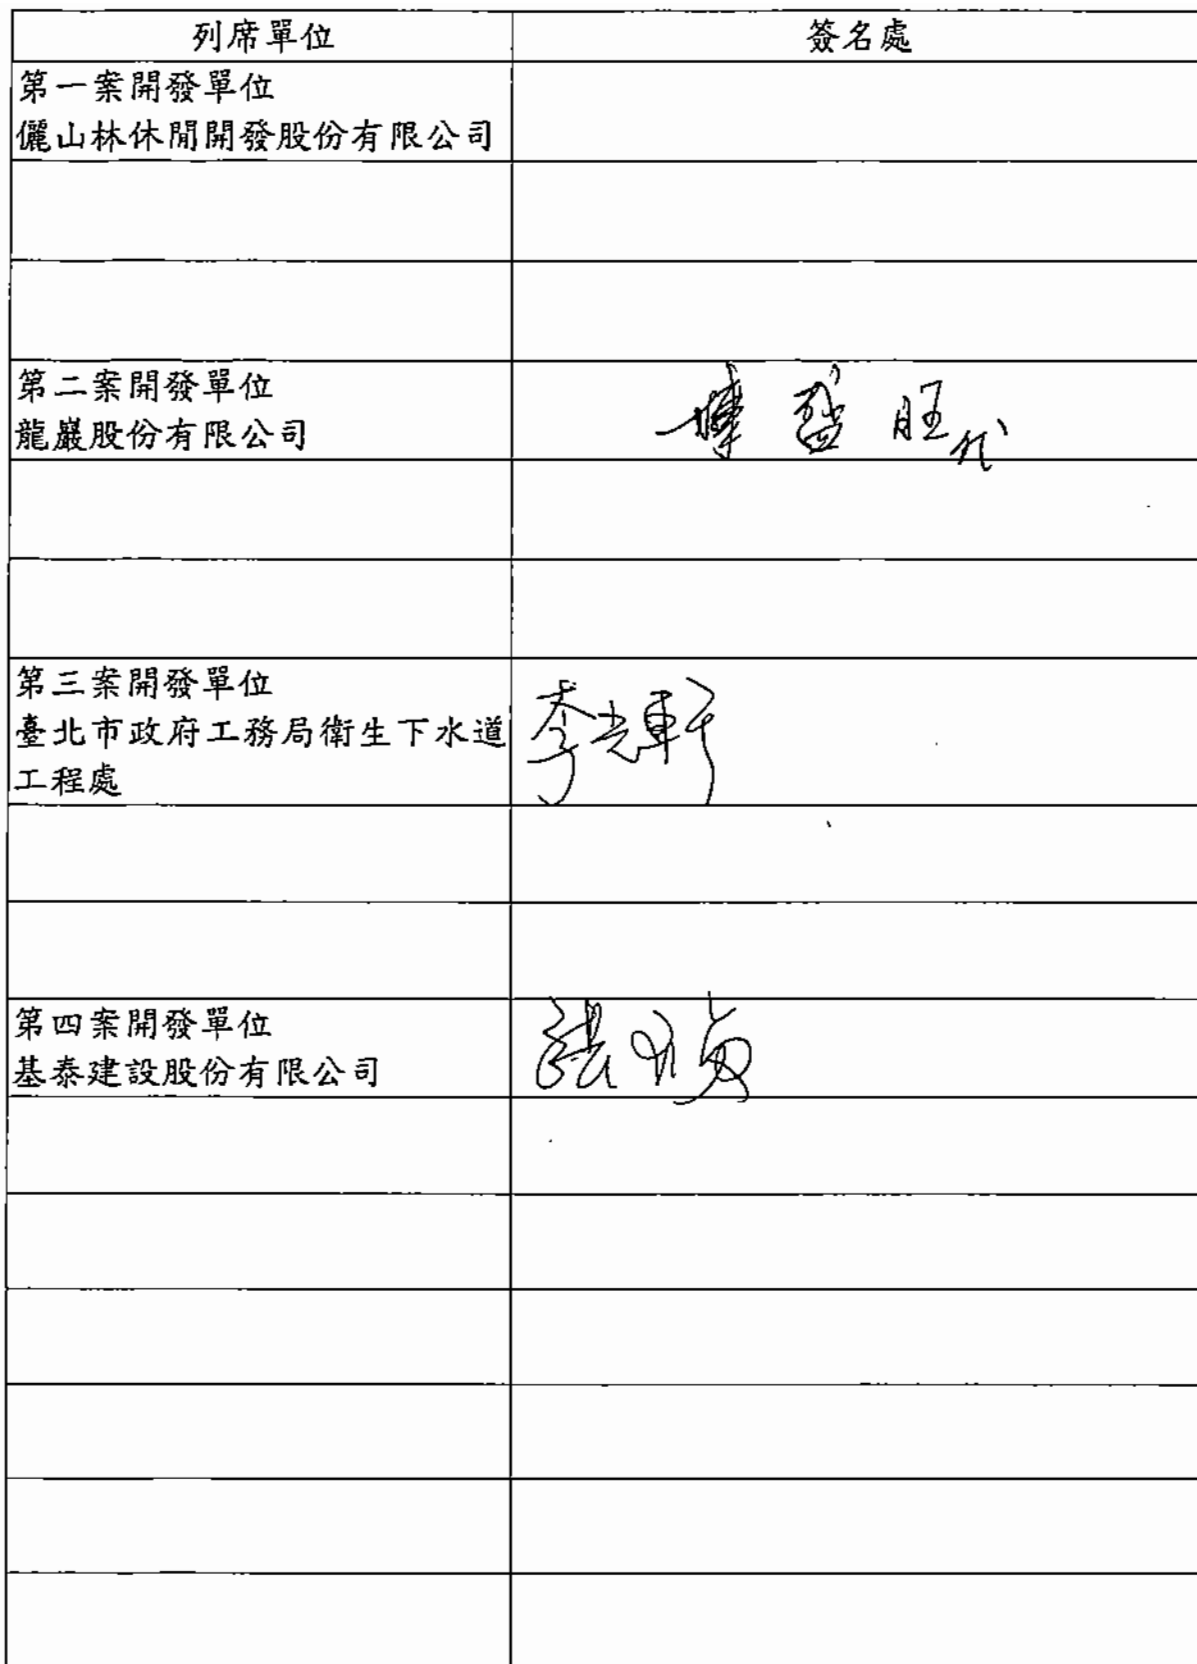 列席單位
簽名處
第一案開發單位
儷山林休閒開發股份有限公司
第二案開發單位
龍巖股份有限公司
盛旺代
第三案開發單位
臺北市政府工務局衛生下水道
工程處
李光軒
第四案開發單位
基泰建設股份有限公司
張